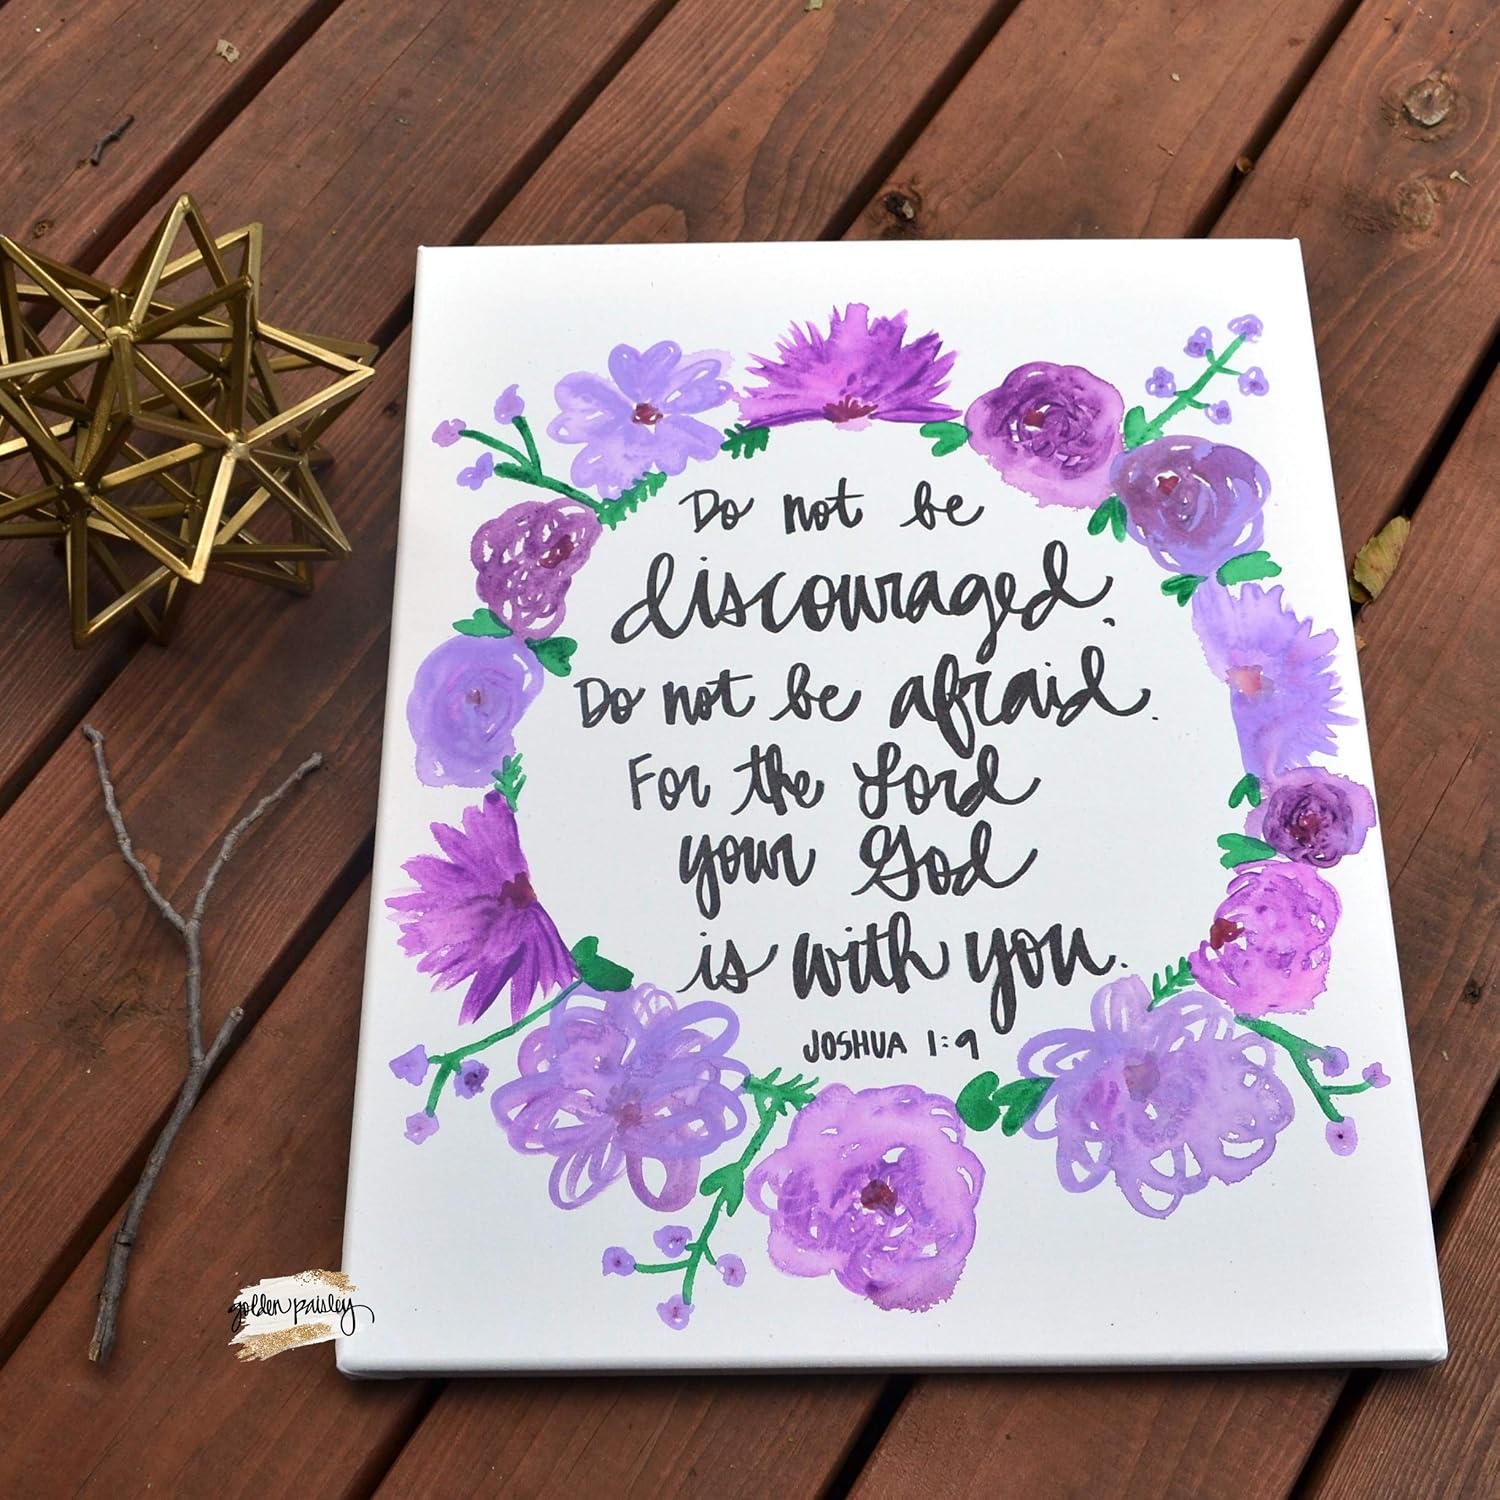 Do not be
discouraged.
Do not be afraid.
For the Lord
your God
is with you.
JOSHUA 1:9
golden paisley